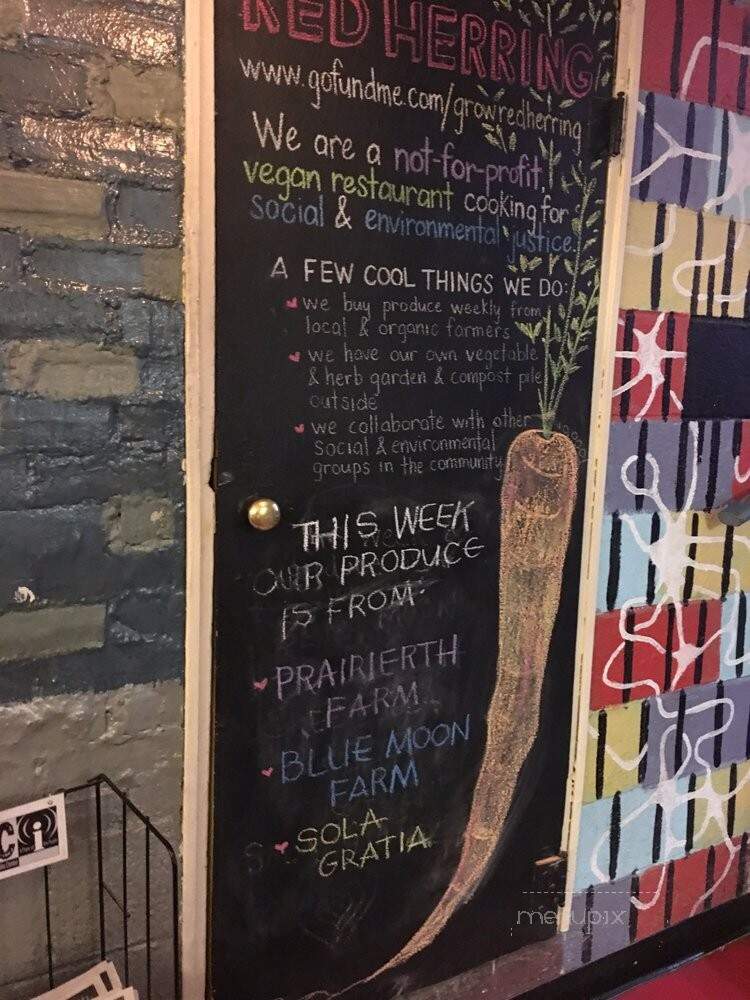 RED HERRING
www.gofundme.com/growredherring
We are a not-for-profit,
vegan restaurant cooking for
social & environmental justice.
A FEW COOL THINGS WE DO:
we buy produce weekly from
local & organic farmers
we have our own vegetable
& herb garden & compost pile
outside
we collaborate with other
social & environmental
groups in the community
THIS WEEK
OUR PRODUCE
IS FROM:
PRAIRIERTH
FARM
BLUE MOON
FARM
SOLA
GRATIA
Ci
menupix